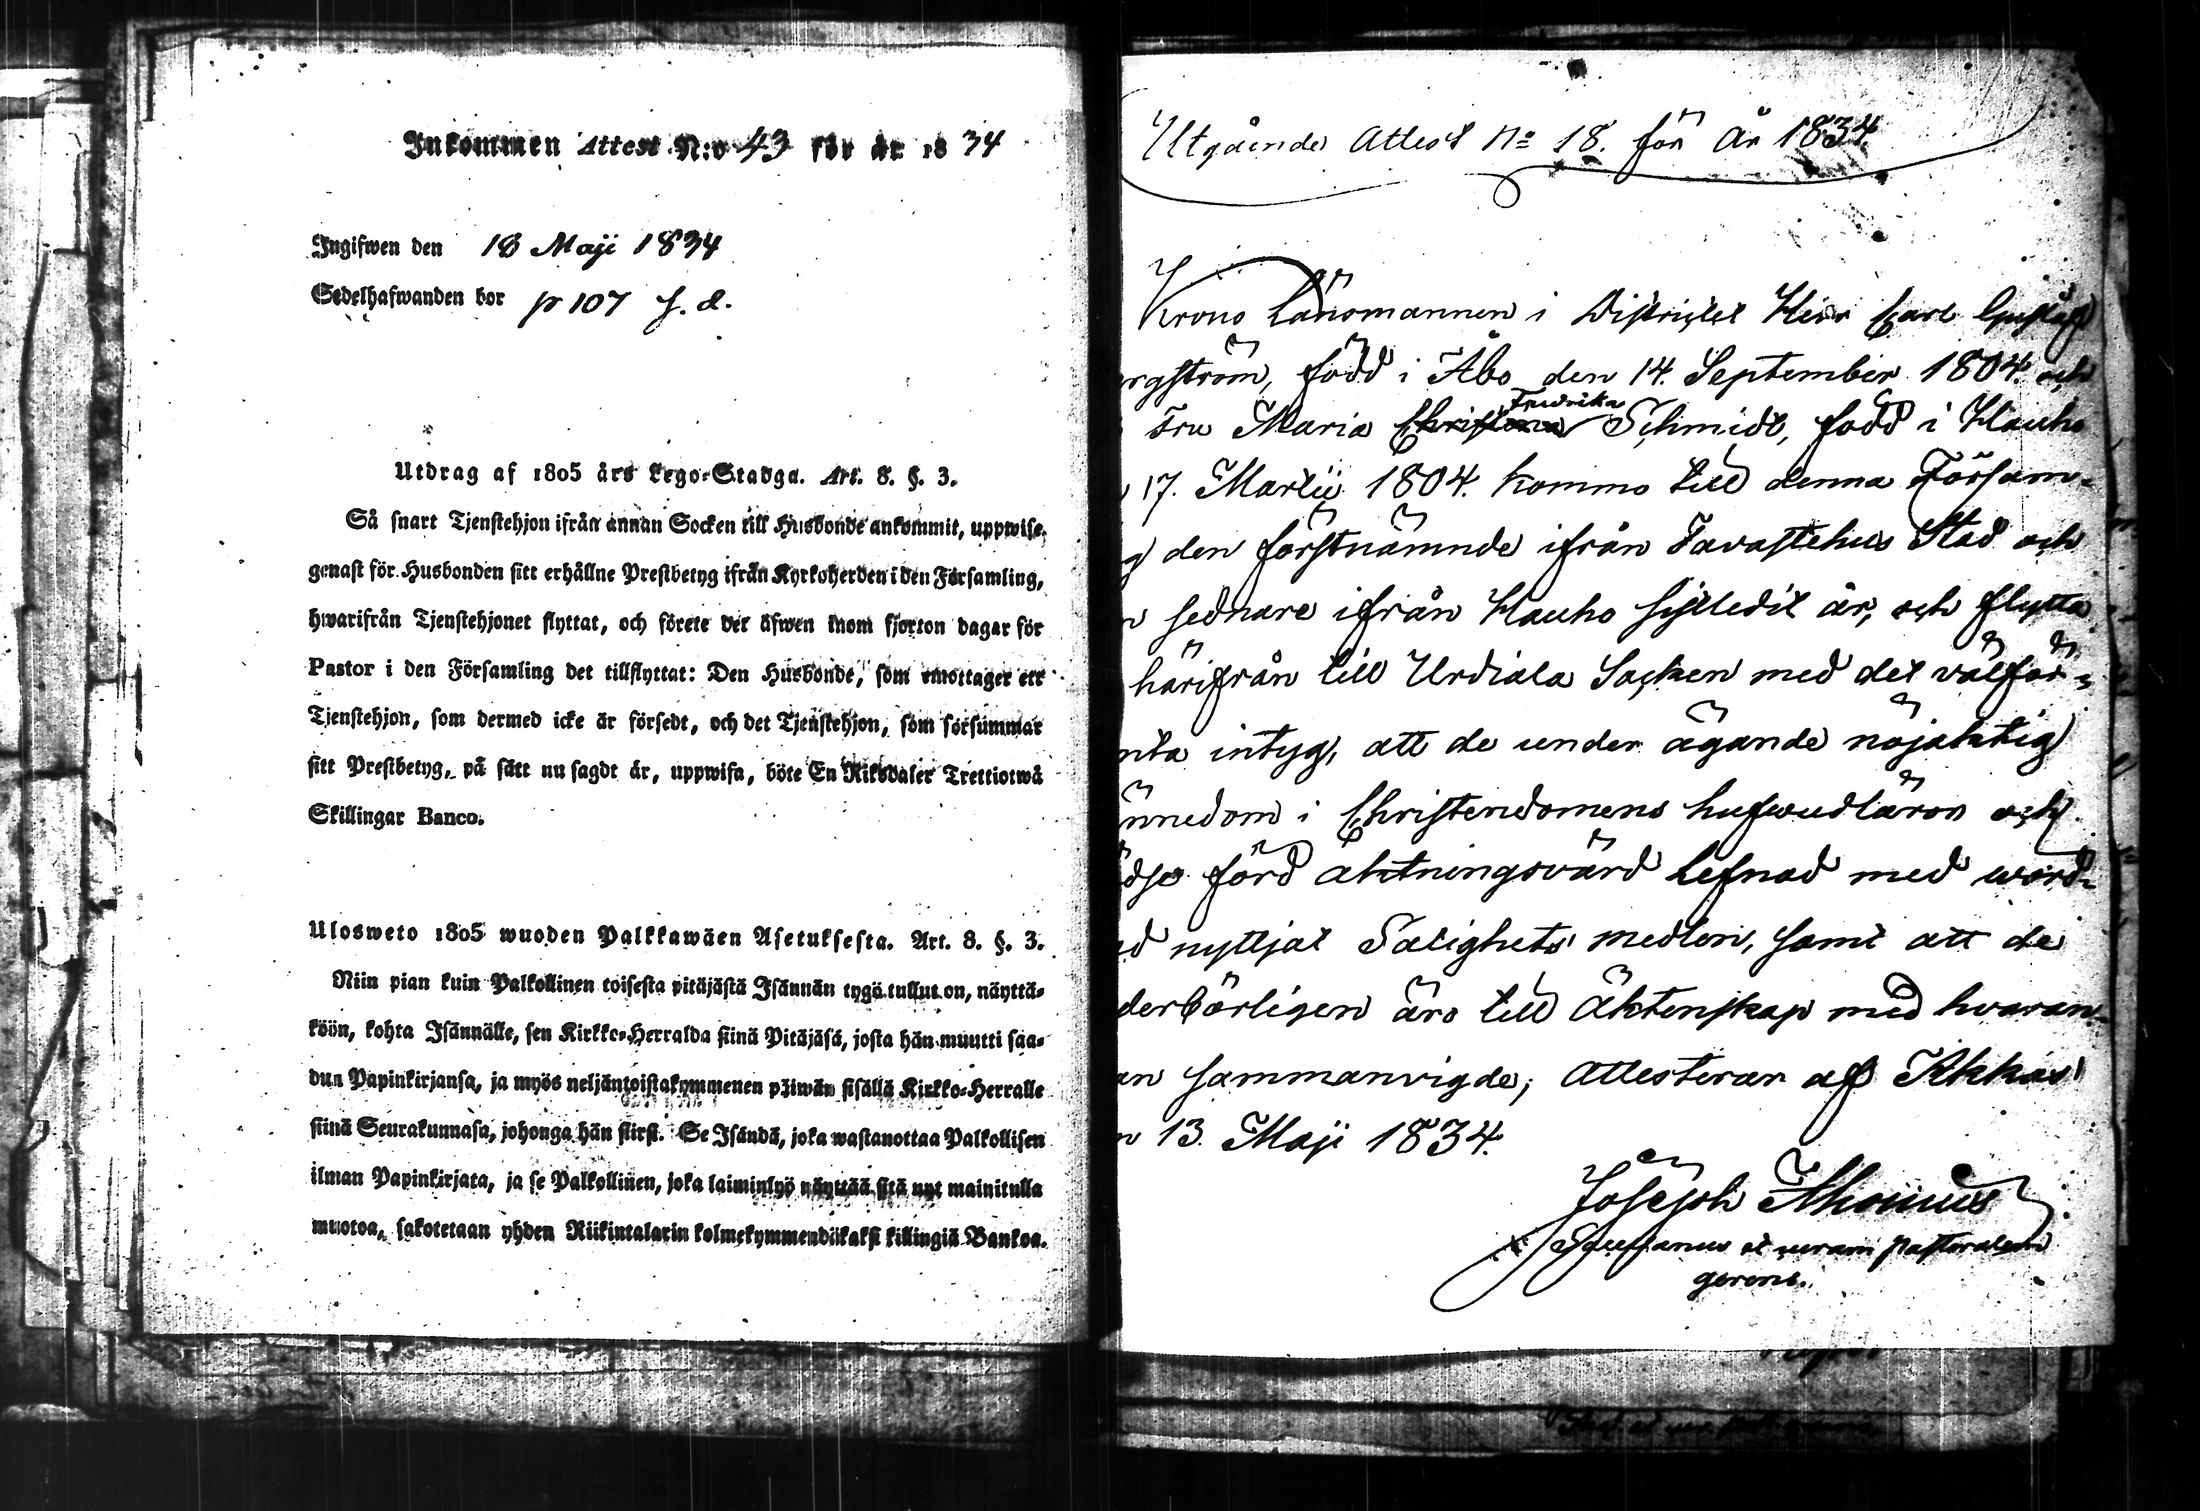 Inkommen Attest N:o 43 för år 1834
Ingifwen den 18 Maji 1834
Sedelhafwanden bor p 107 f. d.
Utdrag af 1805 års Lego-Stadga. Art. 8. §. 3.
Så snart Tjenstehjon ifrån annan Socken till Husbonde ankommit, uppwise
genast för Husbonden sitt erhållne Prestbetyg ifrån Kyrkoherden i den Församling,
hwarifrån Tjenstehjonet flyttat, och förete det äfwen inom fjorton dagar för
Pastor i den Församling det tillflyttat: Den Husbonde, som emottager ett
Tjenstehjon, som dermed icke är försedt, och det Tjenstehjon, som försummar
sitt Prestbetyg, på sätt nu sagdt är, uppwisa, böte En Riksdaler Trettiotwå
Skillingar Banco.
Ulosweto 1805 wuoden Palkkawäen Asetuksesta. Art. 8. §. 3.
Niin pian kuin Palkollinen toisesta pitäjästä Isännän tygö tullut on, näyttä-
köön, kohta Isännälle, sen Kirkko-Herralda siinä Pitäjäsä, josta hän muutti saa-
dun Papinkirjansa, ja myös neljäntoistakymmenen päiwän sisällä Kirkko-Herralle
siinä Seurakunnasa, johonga hän siirsi. Se Isändä, joka wastanottaa Palkollisen
ilman Papinkirjata, ja se Palkollinen, joka laiminlyö näyttää sitä nyt mainitulla
muotoa, sakotetaan yhden Riikintalarin kolmekymmendäkaksi killingiä Bankoa.
Utgående Attest No 18. för År 1834.
Krono Länsmannen i Districtet Herr Carl Gustaf
rgström, född i Åbo den 14. September 1804. och
Fru Maria Christina Fredrika Schmidt, född i Hauho
17. Martii 1804. kommo till denna Församl-
g den förstnämnde ifrån Tavastehus Stad och
n sednare ifrån Hauho sistledit år, och flytta
härifrån till Urdiala Socken med det välför-
nta intyg, att de under ägande nöjaktig
nnedom i Christendomens hufwudläror och
förd aktningsvärd Lefnad med wörd-
d nyttjat Salighets medlen, samt att de
derbörligen äro till Äktenskap med hvaran-
an sammanvigde; Attesterar af Akkas
n 13. Maji 1834.
Joseph
et curam pastoralem
gerens.